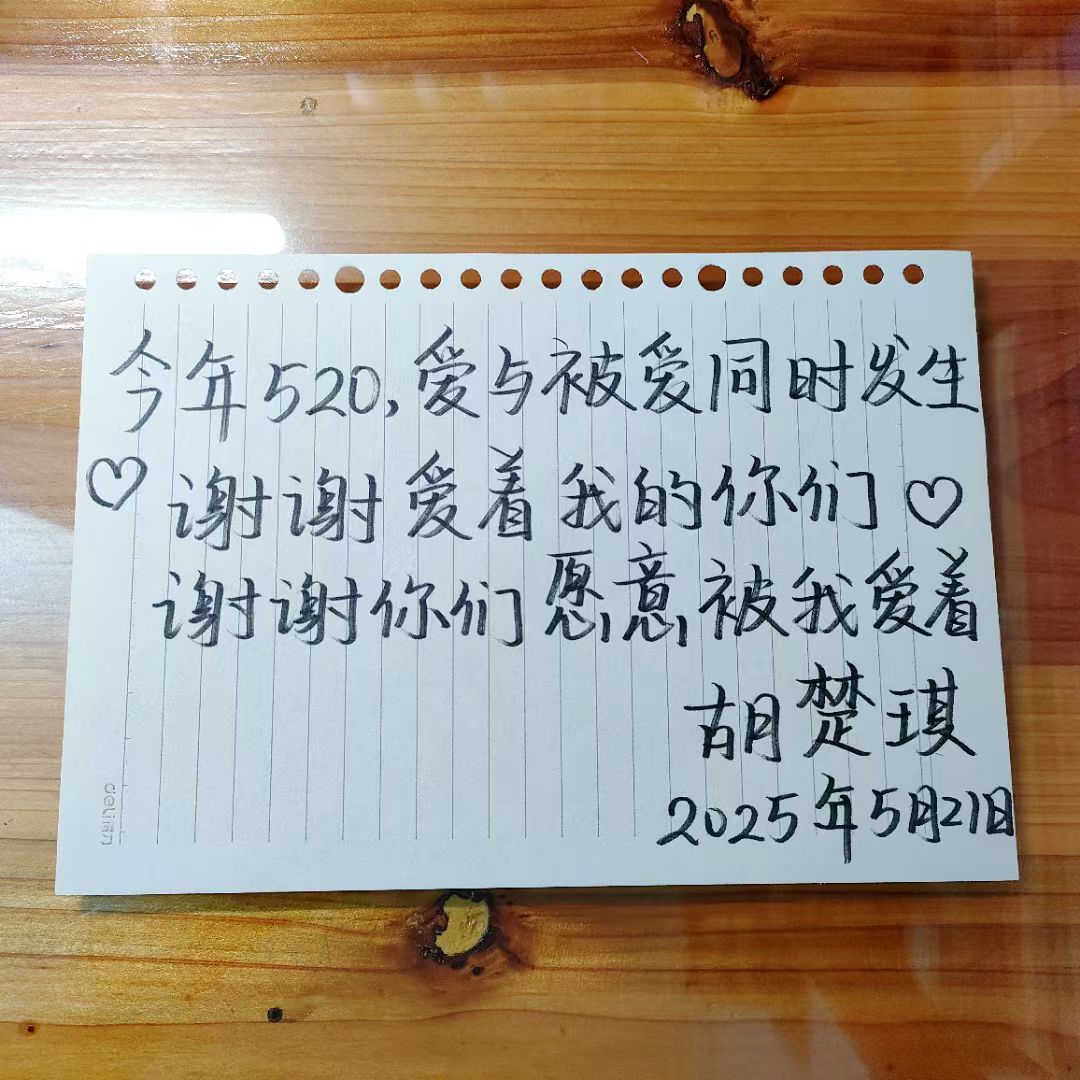 今年520,爱与被爱同时发生
♡ 谢谢爱着我的你们 ♡
谢谢你们愿意被我爱着
胡楚琪
2025年5月21日
deli